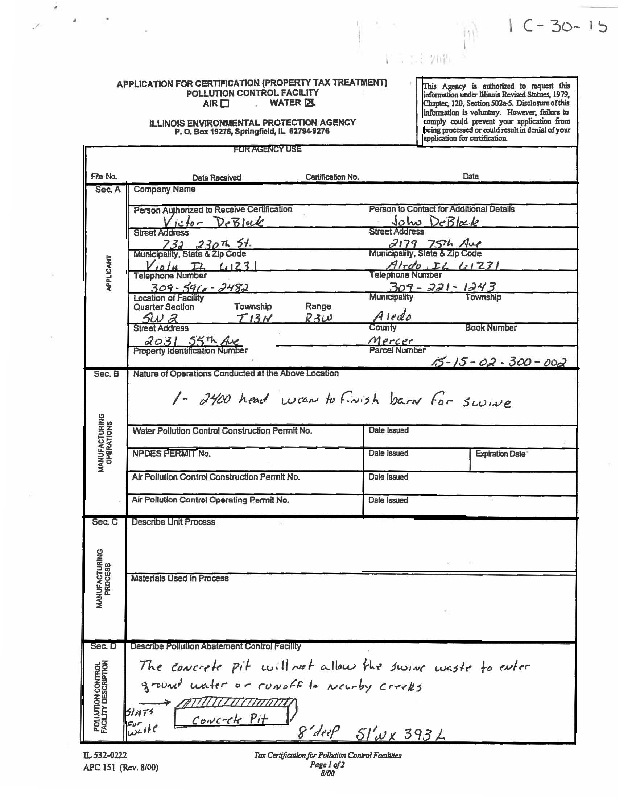 1C-30-15
APPLICATION FOR CERTIFICATION (PROPERTY TAX TREATMENT)
POLLUTION CONTROL FACILITY
AIR ☐ . WATER ☒
ILLINOIS ENVIRONMENTAL PROTECTION AGENCY
P. O. Box 19276, Springfield, IL 62794-9276
This Agency is authorized to request this
information under Illinois Revised Statues, 1979,
Chapter, 120, Section 502a-5. Disclosure of this
information is voluntary. However, failure to
comply could prevent your application from
being processed or could result in denial of your
application for certification.
FOR AGENCY USE
File No. Date Received Certification No. Date
Sec. A Company Name
Person Authorized to Receive Certification Person to Contact for Additional Details
Victor DeBlock John DeBlock
Street Address Street Address
732 230th St. 2179 75th Ave
Municipality, State & Zip Code Municipality, State & Zip Code
Viola IL 61231 Aledo, IL 61231
Telephone Number Telephone Number
309-596-2482 309-221-1243
APPLICANT
Location of Facility Municipality Township
Quarter Section Township Range
SW 2 T13N R3W Aledo
Street Address County Book Number
2031 55th Ave Mercer
Property Identification Number Parcel Number
15-15-02-300-002
Sec. B Nature of Operations Conducted at the Above Location
1- 2400 head wean to finish barn for swine
MANUFACTURING OPERATIONS
Water Pollution Control Construction Permit No. Date Issued
NPDES PERMIT No. Date Issued Expiration Date
Air Pollution Control Construction Permit No. Date Issued
Air Pollution Control Operating Permit No. Date Issued
Sec. C Describe Unit Process
MANUFACTURING PROCESS
Materials Used in Process
Sec. D Describe Pollution Abatement Control Facility
POLLUTION CONTROL FACILITY DESCRIPTION
The concrete pit will not allow the swine waste to enter
ground water or runoff to nearby creeks
Slats
for
waste
Concrete Pit
8' deep 51'W x 393 L
IL 532-0222 Tax Certification for Pollution Control Facilities
APC 151 (Rev. 8/00) Page 1 of 2
8/00